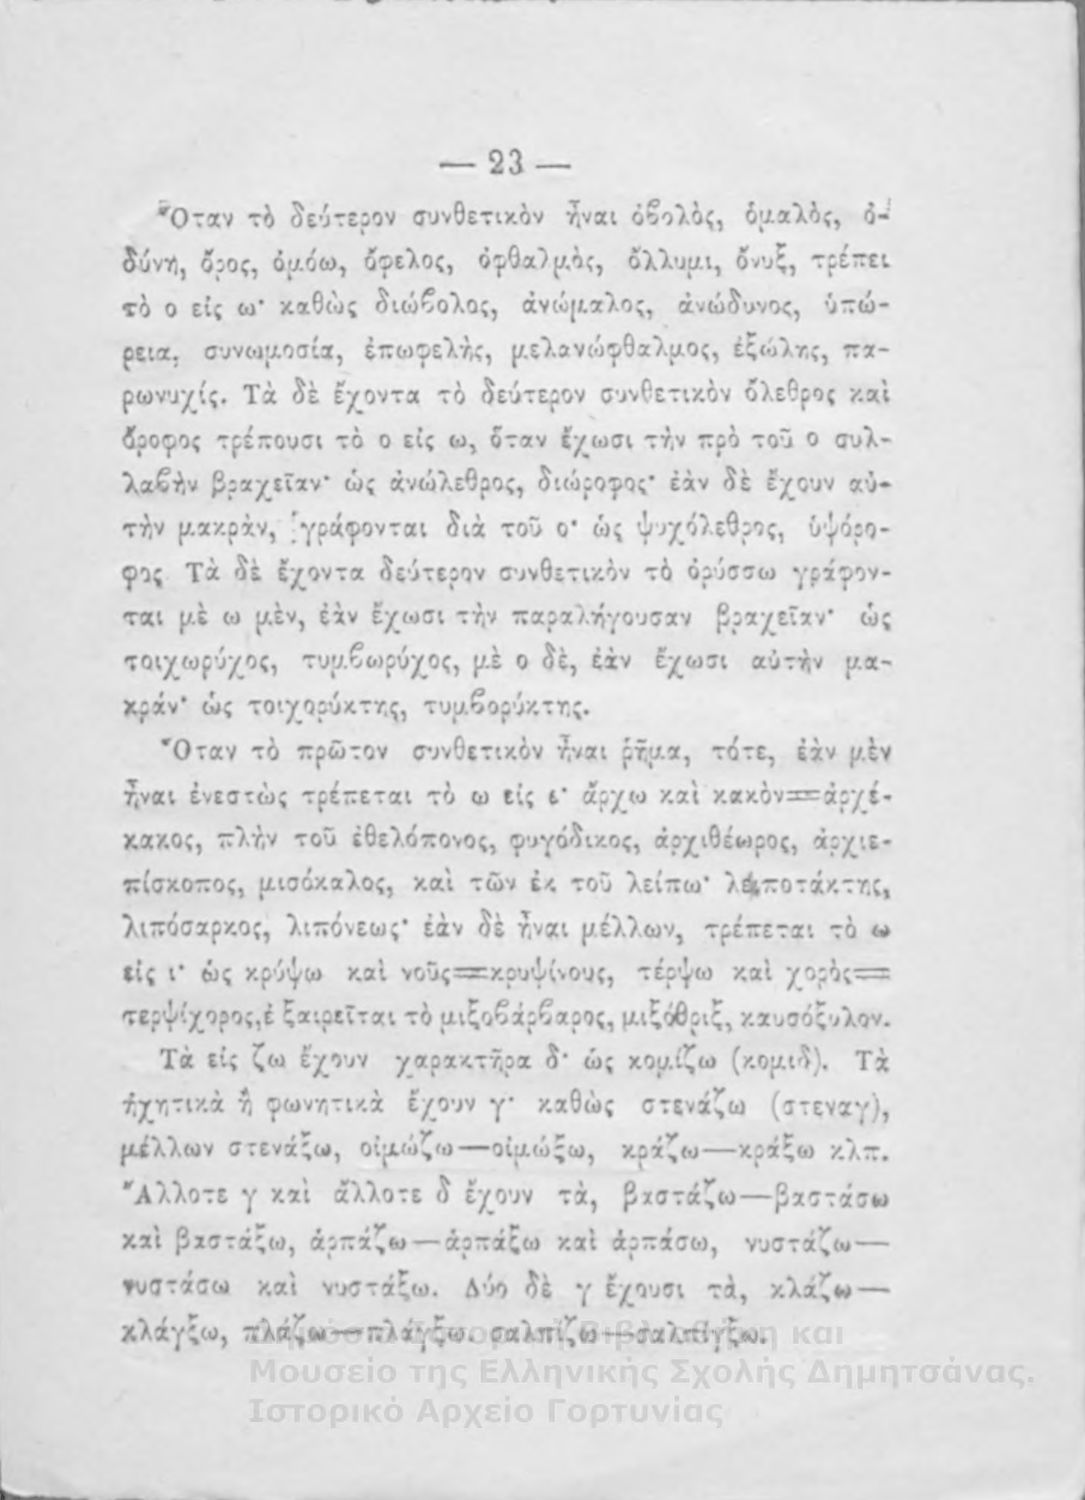 — 23 —
Ὅταν τὸ δεύτερον συνθετικὸν ἦναι ὀβολὸς, ὁμαλὸς, ὀ-
δύνη, ὄρος, ὀμόω, ὄφελος, ὀφθαλμὸς, ὄλλυμι, ὄνυξ, τρέπει
τὸ ο εἰς ω· καθὼς διώβολος, ἀνώμαλος, ἀνώδυνος, ὑπώ-
ρεια, συνωμοσία, ἐπωφελὴς, μελανώφθαλμος, ἐξώλης, πα-
ρωνυχίς. Τὰ δὲ ἔχοντα τὸ δεύτερον συνθετικὸν ὄλεθρος καὶ
ὄροφος τρέπουσι τὸ ο εἰς ω, ὅταν ἔχωσι τὴν πρὸ τοῦ ο συλ-
λαβὴν βραχεῖαν· ὡς ἀνώλεθρος, διώροφος· ἐὰν δὲ ἔχουν αὐ-
τὴν μακρὰν, γράφονται διὰ τοῦ ο· ὡς ψυχόλεθρος, ὑψόρο-
φος Τὰ δὲ ἔχοντα δεύτερον συνθετικὸν τὸ ὀρύσσω γράφον-
ται μὲ ω μὲν, ἐὰν ἔχωσι τὴν παραλήγουσαν βραχεῖαν· ὡς
τοιχωρύχος, τυμβωρύχος, μὲ ο δὲ, ἐὰν ἔχωσι αὐτὴν μα-
κράν· ὡς τοιχορύκτης, τυμβορύκτης.
Ὅταν τὸ πρῶτον συνθετικὸν ἦναι ῥῆμα, τότε, ἐὰν μὲν
ἦναι ἐνεστὼς τρέπεται τὸ ω εἰς ε· ἄρχω καὶ κακὸν=ἀρχέ-
κακος, πλὴν τοῦ ἐθελόπονος, φυγόδικος, ἀρχιθέωρος, ἀρχιε-
πίσκοπος, μισόκαλος, καὶ τῶν ἐκ τοῦ λείπω· λειποτάκτης,
λιπόσαρκος, λιπόνεως· ἐὰν δὲ ἦναι μέλλων, τρέπεται τὸ ω
εἰς ι· ὡς κρύψω καὶ νοῦς=κρυψίνους, τέρψω καὶ χορὸς=
τερψίχορος,ἐ ξαιρεῖται τὸ μιξοβάρβαρος, μιξόθριξ, καυσόξυλον.
Τὰ εἰς ζω ἔχουν χαρακτῆρα δ· ὡς κομίζω (κομιδ). Τὰ
ἠχητικὰ ἢ φωνητικὰ ἔχουν γ· καθὼς στενάζω (στεναγ),
μέλλων στενάξω, οἰμώζω—οἰμώξω, κράζω—κράξω κλπ.
Ἄλλοτε γ καὶ ἄλλοτε δ ἔχουν τὰ, βαστάζω—βαστάσω
καὶ βαστάξω, ἁρπάζω—ἁρπάξω καὶ ἁρπάσω, νυστάζω—
νυστάσω καὶ νυστάξω. Δύο δὲ γ ἔχουσι τὰ, κλάζω—
κλάγξω, πλάζω—πλάγξω. σαλπίζω—σαλπίγξω.
Δημόσια Ιστορική Βιβλιοθήκη και
Μουσείο της Ελληνικής Σχολής Δημητσάνας.
Ιστορικό Αρχείο Γορτυνίας